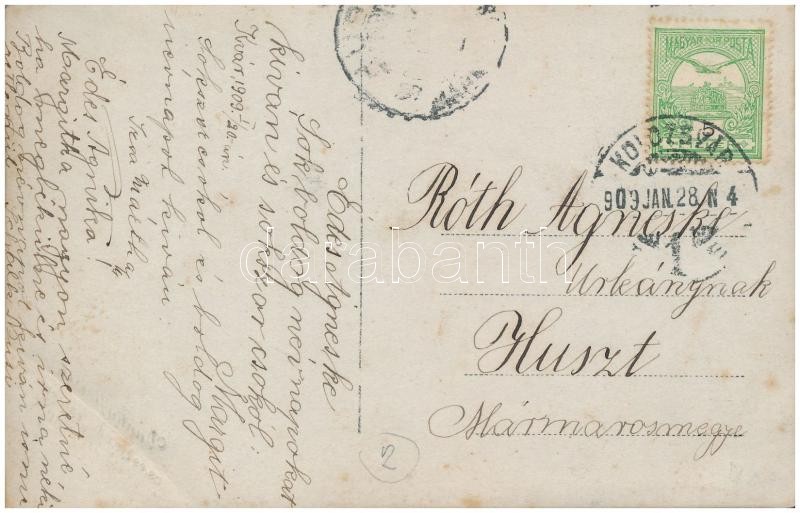 MAGYAR KIR. POSTA
KOLOZSVÁR
909 JAN. 28. N 4
1
Róth Ágneske
Urleánynak
Huszt
Mármarosmegye
Édes Ágneske
Sok boldog névnapokat
kiván és sokszor csókol:
Margit
Kvár, 1909. I/28 án.
Sokszor csókol és boldog
névnapot kíván:
Irén Mártha
Édes Ágnika!
Margitka nagyon szeretné,
ha meglátná és irna neki
darabanth
5